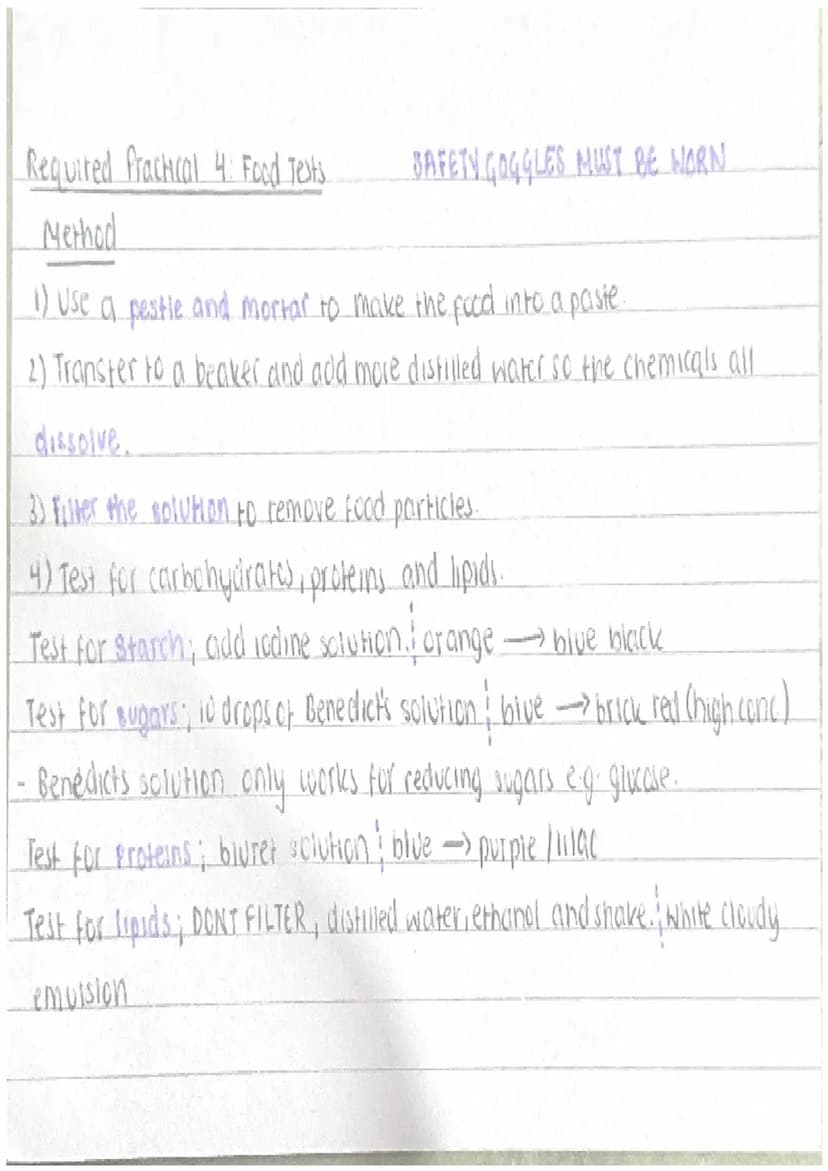 Required Practical 4: Food Tests SAFETY GOGGLES MUST BE WORN
Method
1) Use a pestle and mortar to make the food into a paste.
2) Transfer to a beaker and add more distilled water so the chemicals all
dissolve.
3) Filter the solution to remove food particles.
4) Test for carbohydrates, proteins and lipids.
Test for starch; add iodine solution. ¦ orange → blue black
Test for sugars; 10 drops of Benedict's solution ¦ blue → brick red (high conc.)
- Benedicts solution only works for reducing sugars e.g. glucose.
Test for proteins; biuret solution ¦ blue → purple / lilac
Test for lipids; DONT FILTER, distilled water, ethanol and shake. ¦ white cloudy
emulsion